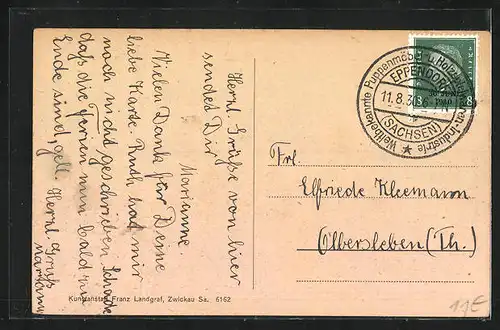 Herzl. Grüße von hier
sendet Dir
Marianne.
Vielen Dank für Deine
liebe Karte. Ruth hat mir
noch nicht geschrieben. Schade
daß die Ferien nun bald zu
Ende sind, gell. Herzl. Gruß
Marianne
Weltbekannte Puppenmöbel u. Holzwaren-Industrie
EPPENDORF
11.8.30.6-
(SACHSEN)
8
Frl.
Elfriede Kleemann
Olbersleben (Th.)
Kunstanstalt Franz Landgraf, Zwickau Sa. 6162